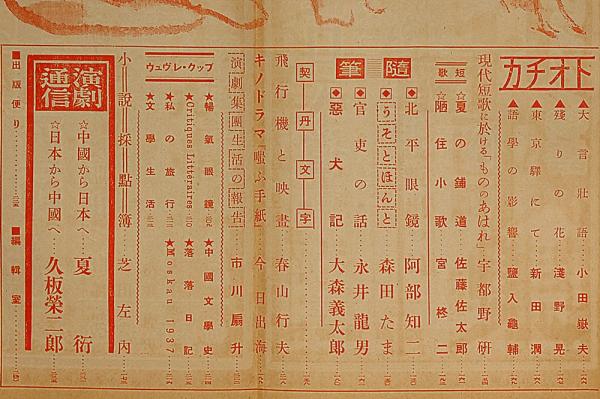 カチオト
▲大言壯語…小田嶽夫
▲殘りの花…淺野晃
▲東京驛にて…新田潤
▲語學の影響…鹽入龜輔
現代短歌に於ける「もののあはれ」…宇都野研
短歌
☆夏の鋪道…佐藤佐太郎
☆陋住小歌…宮柊二
隨筆
◆北平眼鏡…阿部知二
◆うそとほんと…森田たま
◆官吏の話…永井龍男
◆惡犬記…大森義太郎
契丹文字
飛行機と映畫…春山行夫
キノドラマ「嗤ふ手紙」…今日出海
演劇集團生活の報告…市川扇升
ブック・レヴュウ
★暢氣眼鏡
★中國文學史
★Critiques Littéraires
★落落日記
★私の旅行
★Moskau 1937
★文學生活
小說採點簿…芝左內
演劇通信
☆中國から日本へ…夏衍
☆日本から中國へ…久板榮二郎
■出版便り
■編輯室